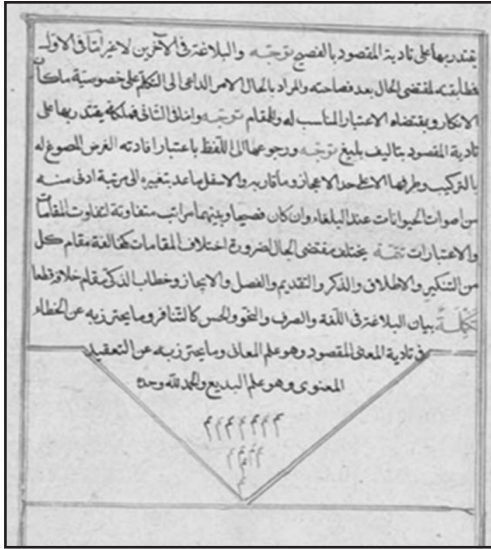 يقتدر بها على تادية المقصود بالفصيح توجيه والبلاغة في الآخرين لا غير اما في الاول
فمطابقته لمقتضى الحال بعد فصاحته والمراد بالحال الامر الداعي الى التكلم على خصوصية ما كما
الانكار وبمقتضاه الاعتبار المناسب له وللمقام توجيه واما في الثاني فملكة يقتدر بها على
تادية المقصود بتاليف بليغ توجيه ورجوعها الى اللفظ باعتبار افادته الغرض المصوغ له
بالتركيب وطرفها الاعلى حد الاعجاز وما قاربه والاسفل ما عد بتغييره الى مرتبة ادنى منه
من اصوات الحيوانات عند البلغاء وان كان فصيحا وبينهما مراتب متفاوتة لتفاوت المقامات
والاعتبارات تتمة يختلف مقتضى الحال لضرورة اختلاف المقامات كمخالفة مقام كل
من التنكير والاطلاق والذكر والتقديم والفصل والايجاز وخطاب الذكي مقام خلافه قطعا
تكملة ببيان البلاغة في اللغة والصرف والنحو والحس كالتنافر وما يحترز به عن الخطاء
في تادية المعنى المقصود وهو علم المعاني وما يحترز به عن التعقيد
المعنوي وهو علم البديع والحمد لله وحده
م م م م م م
م م م م
م